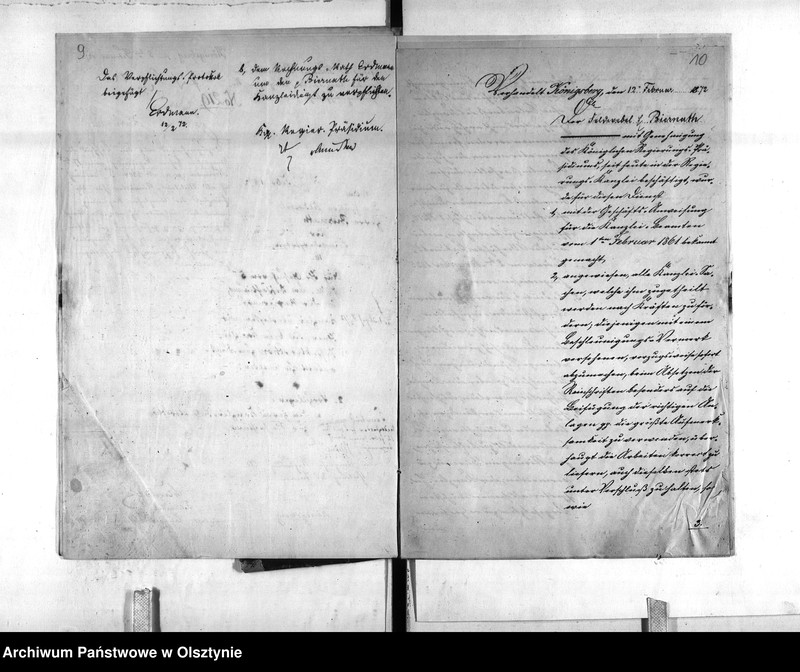 9
Das Verpflichtungs-Protokoll
beigefügt
Erdmann.
12/2 72.
2, dem Rechnungs-Rath Erdmann
um den p Biernath für den
Kanzleidienst zu verpflichten.
Kg. Regier. Präsidium.
10
Verhandelt Königsberg, den 12. Februar 1872
Der Feldwebel p Biernath
mit Genehmigung
des Königlichen Regierungs-Prä-
sidiums, seit heute in der Regie-
rungs-Kanzlei beschäftigt, wur-
de für diesen Dienst
1, mit der Geschäfts-Anweisung
für die Kanzlei-Beamten
vom 1ten Februar 1861 bekannt
gemacht,
2, angewiesen, alle Kanzlei-Sa-
chen, welche ihm zugetheilt
werden nach Kräften zu för-
dern, diejenigen mit einem
Beschleunigungs-Vermerk
versehenen, vorzugsweise sofort
abzumachen, beim Absetzen der
Reinschriften besonders auf die
Beifügung der richtigen An-
lagen pp die größte Aufmerk-
samkeit zu verwenden, über-
haupt die Arbeiten korrect zu
liefern, auch dieselben stets
unter Verschluß zu halten, so
wie
3.
Archiwum Państwowe w Olsztynie